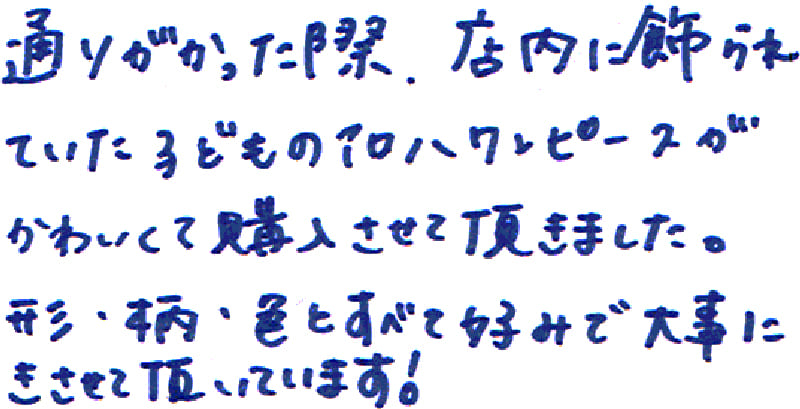 通りがかった際、店内に飾られ
ていた子どものアロハワンピースが
かわいくて購入させて頂きました。
形・柄・色とすべて好みで大事に
きさせて頂いています!